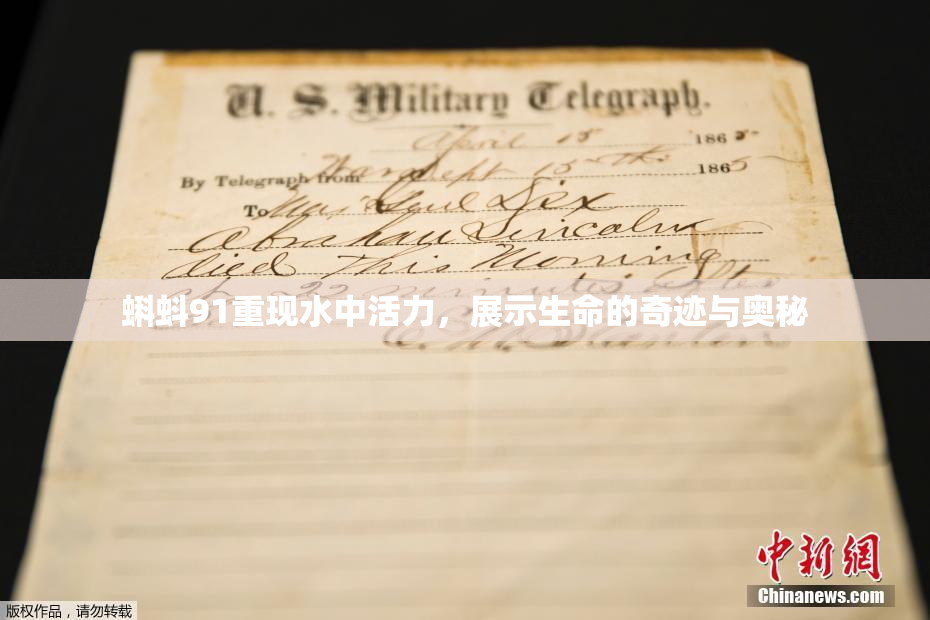 U. S. Military Telegraph.
April 15 1865
By Telegraph from War Dept 15th 1865
To Maj Genl Dix
Abraham Lincoln
died This Morning
at 22 minutes after
蝌蚪91重现水中活力，展示生命的奇迹与奥秘
Stanton
中新网
Chinanews.com
版权作品，请勿转载